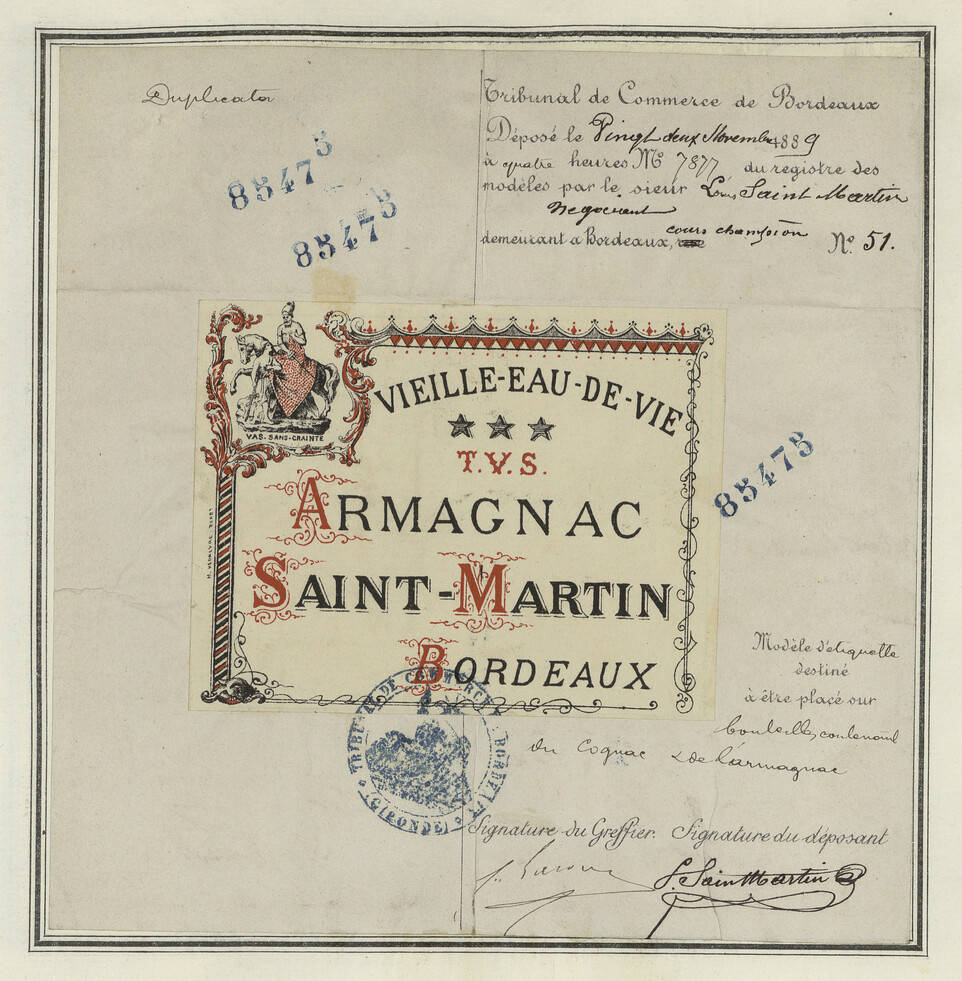 Duplicata
Tribunal de Commerce de Bordeaux
Déposé le Vingt deux Novembre 1889
à quatre heures No 7877 du registre des
modèles par le sieur Louis Saint Martin
Negociant
demeurant a Bordeaux, cours champion No. 51.
85475
85475
VIEILLE-EAU-DE-VIE
VAS-SANS-CRAINTE
T.V.S.
85475
ARMAGNAC
SAINT-MARTIN
BORDEAUX
Modèle d'étiquette
destiné
à être placé sur
bouteilles contenant
du Cognac & de l'armagnac
TRIBUNAL DE COMMERCE BORDEAUX
(GIRONDE)
Signature du Greffier. Signature du déposant
L. Saint Martin